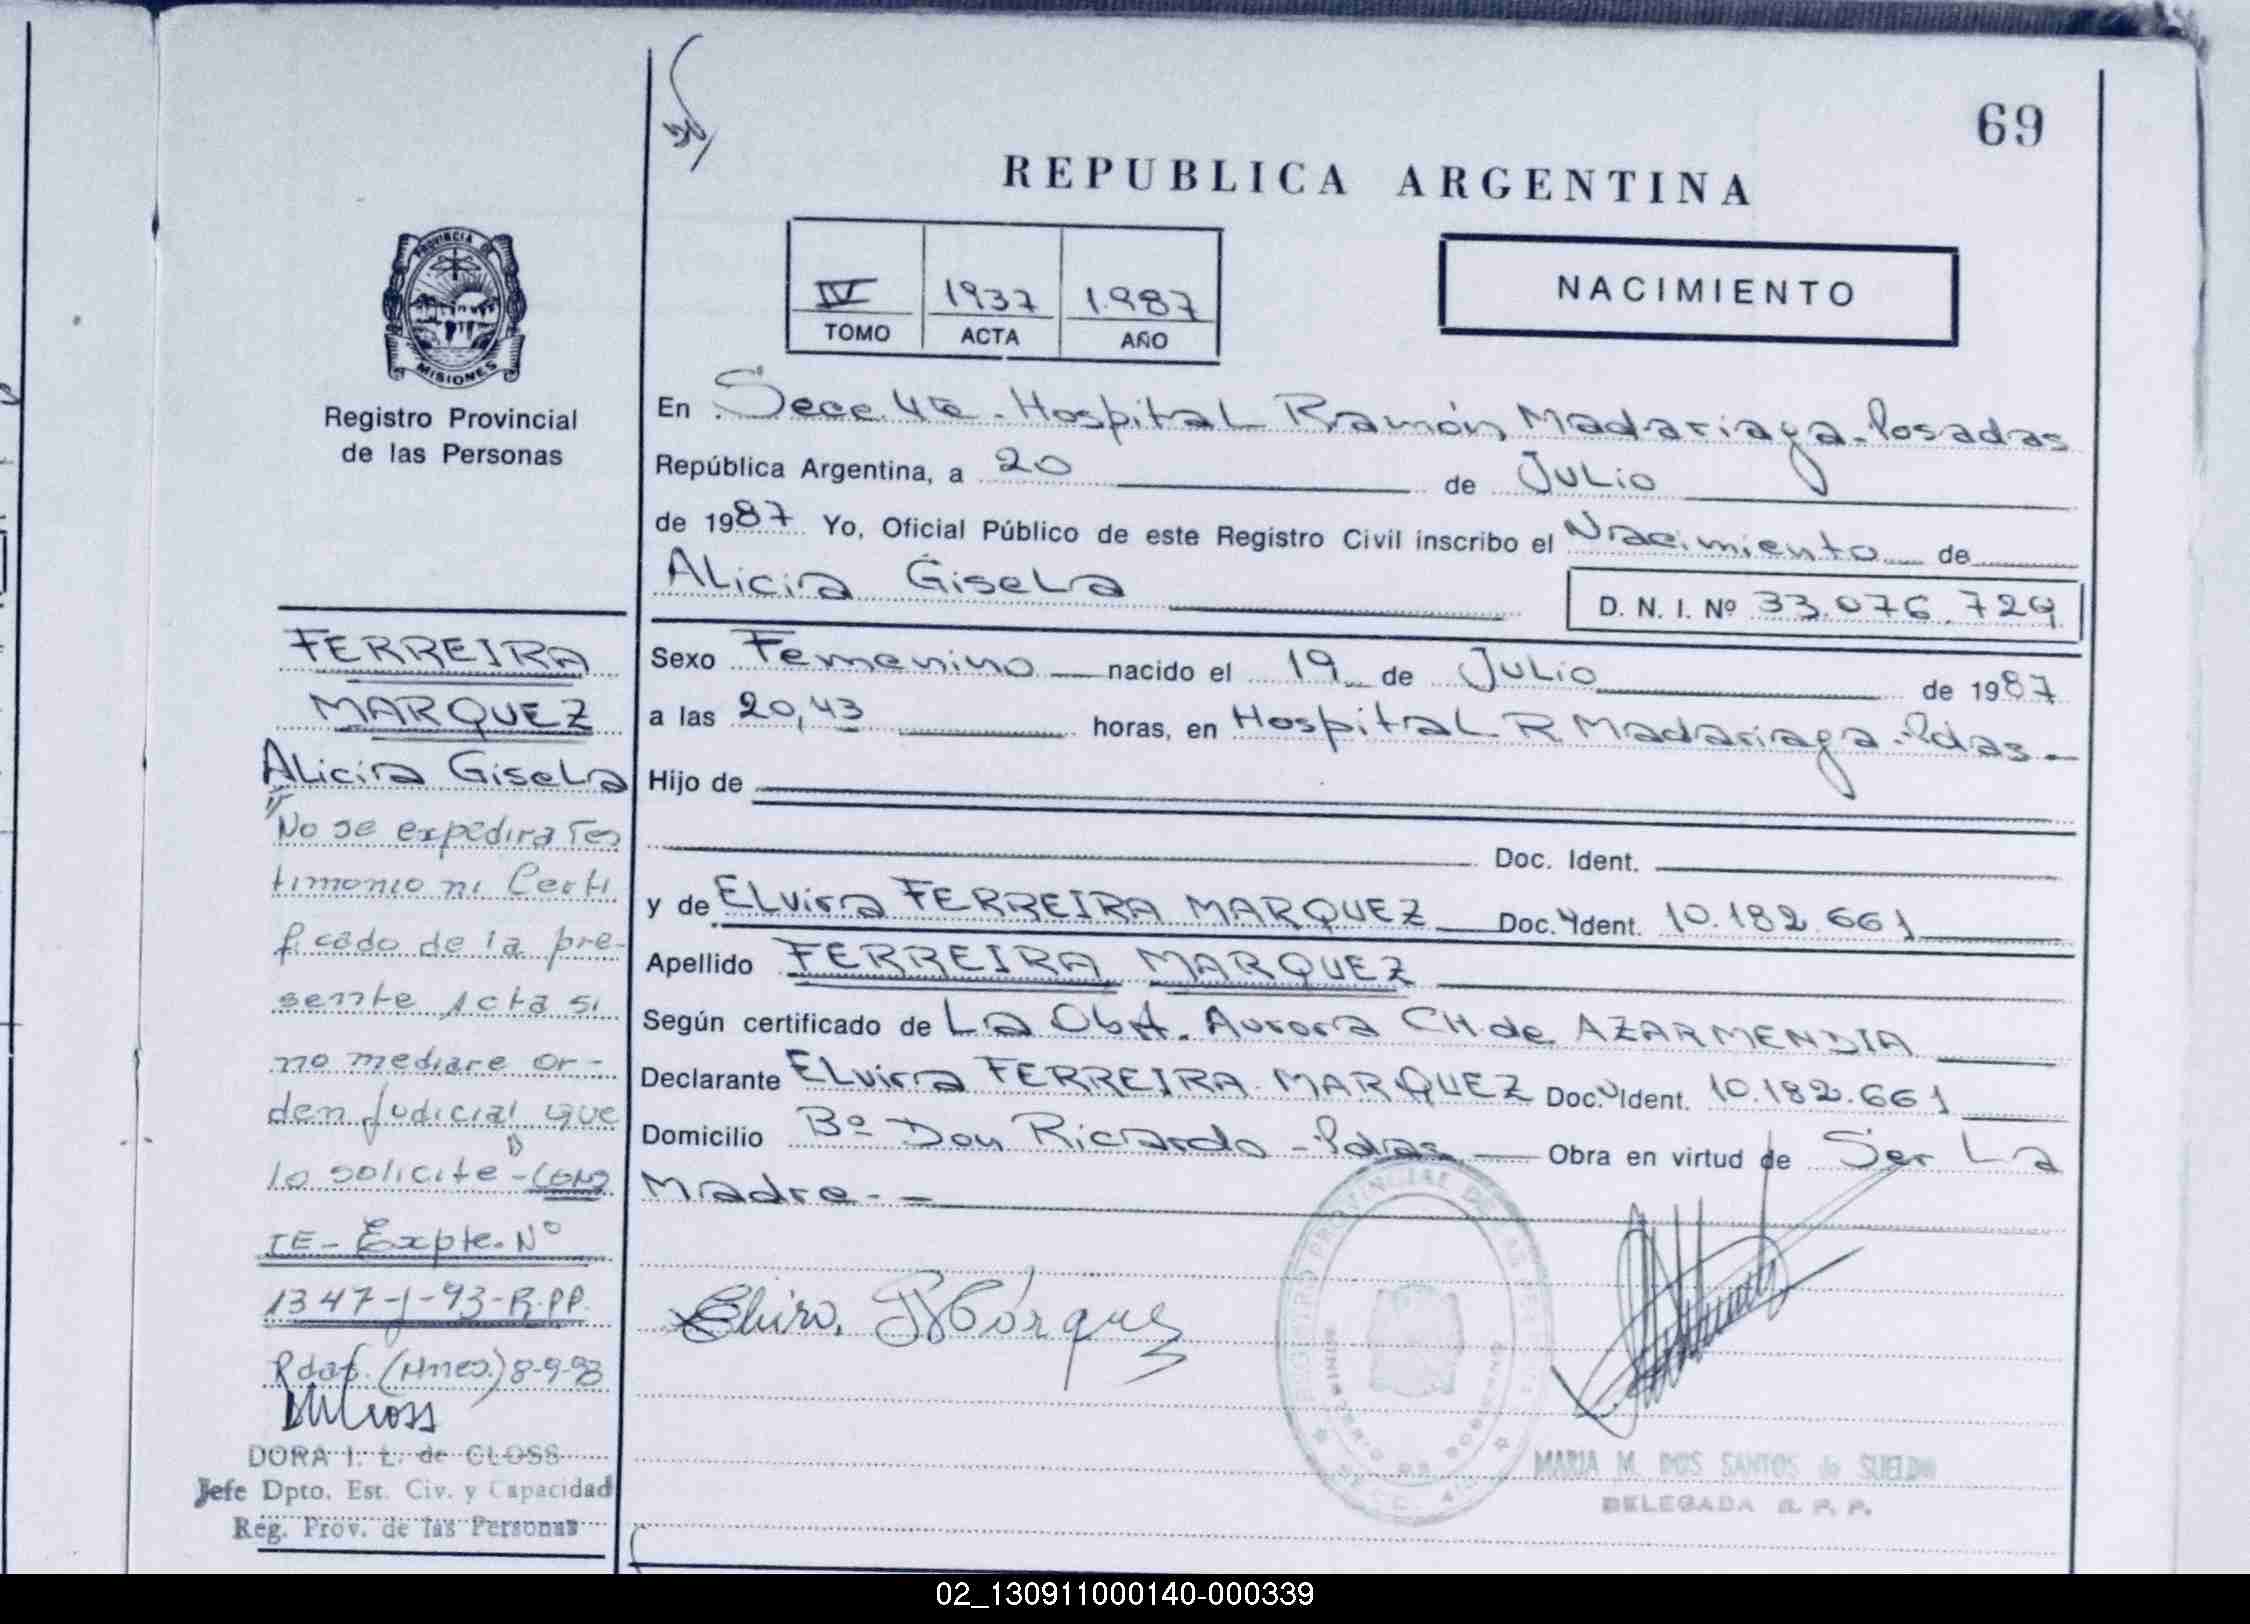 69
REPUBLICA ARGENTINA
PROVINCIA DE
MISIONES
Registro Provincial
de las Personas
IV 1937 1.987
TOMO ACTA AÑO
NACIMIENTO
En Secc. 4ta. Hospital Ramón Madariaga. Posadas
República Argentina, a 20 de Julio
de 1987 Yo, Oficial Público de este Registro Civil inscribo el Nacimiento de
Alicia Gisela
D. N. I. Nº 33.076.729
Sexo Femenino nacido el 19 de Julio de 1987
a las 20,43 horas, en Hospital R Madariaga. Pdas
Hijo de
Doc. Ident.
y de Elvira FERREIRA MARQUEZ Doc. Ident. 10.182.661
Apellido FERREIRA MARQUEZ
Según certificado de La Obst. Aurora CH. de AZARMENDIA
Declarante Elvira FERREIRA MARQUEZ Doc. Ident. 10.182.661
Domicilio Bº Don Ricardo - Pdas Obra en virtud de Ser La
Madre
FERREIRA
MARQUEZ
Alicia Gisela
No se expedira Tes
timonio ni Certi
ficado de la pre-
sente Acta si
no mediare or-
den Judicial que
lo solicite - CONS
TE - Expte. Nº
1347-J-93-R.PP.
Pdas. (Mnes.) 8-9-93
DORA I. L. de CLOSS
Jefe Dpto. Est. Civ. y Capacidad
Reg. Prov. de las Personas
Elvira F Márquez
REGISTRO PROVINCIAL DE LAS PERSONAS
MINISTERIO DE GOBIERNO
MARIA M. DOS SANTOS de SUELDO
DELEGADA R. P. P.
02_130911000140-000339